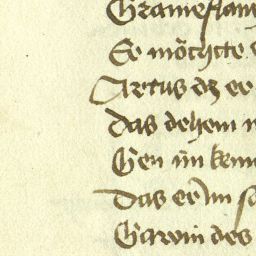 Er möchte
Artus dz er
Das dehein
Gen im kein
Das er im
Gawin des